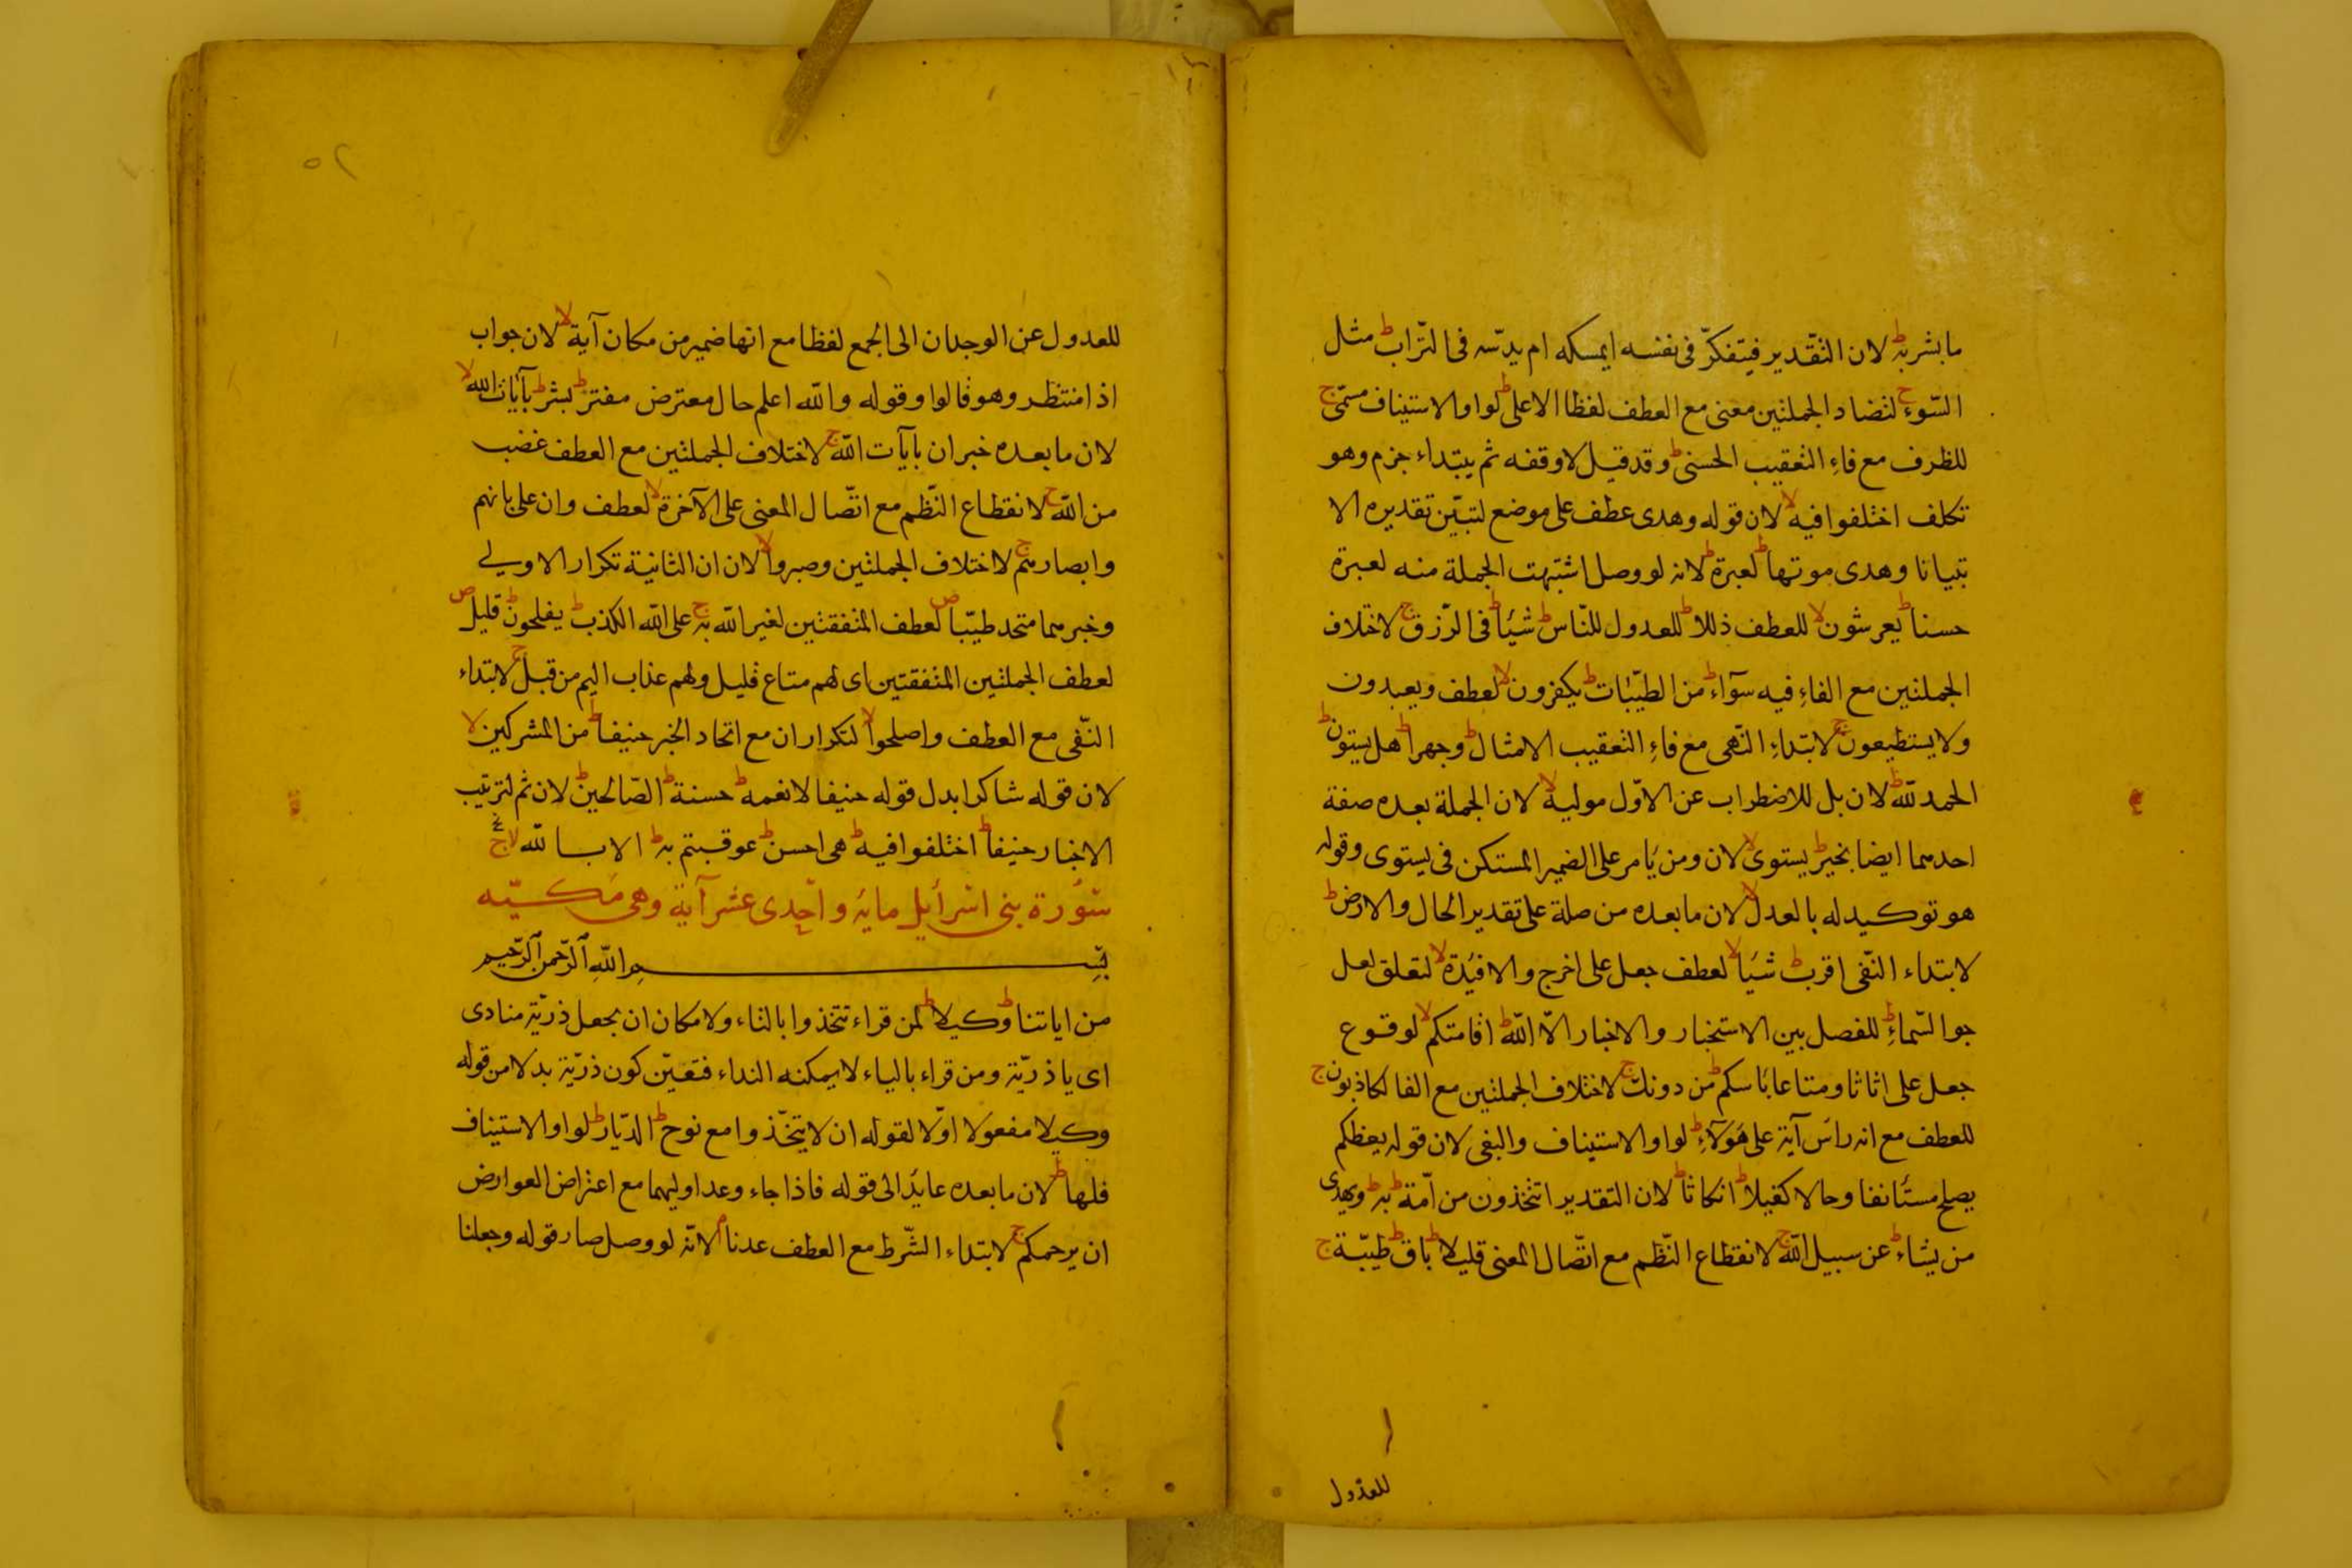 ما بشر به ط لان التقدير فيتفكّر فى نفسه ايمسكه ام يدسّه فى التّراب ط مثل
السّوء ج لتضاد الجملتين معنى مع العطف لفظا الاعلى ط لواو الاستيناف مسمّى ج
للظرف مع فاء التعقيب الحسنى ط وقد قيل لا وقفه ثم يبتداء جزم وهو
تكلف اختلفوا فيه لا لان قوله وهدى عطف على موضع لتبيّن تقديره الا
تبيانا وهدى موتها ط لعبرة ط لانه لو وصل اشتبهت الجملة منه لعبرة
حسنا ط يعرشون لا للعطف ذللا ط للعدول للنّاس ط شيئا ط فى الرّزق ج لاختلاف
الجملتين مع الفاء فيه سوآء ط من الطيّبات ط يكفرون لا لعطف ويعبدون
ولا يستطيعون ج لابتداء النّهى مع فاء التعقيب الامثال ط وجهرا ط هل يستون ط
الحمد لله ط لان بل للاضطراب عن الاوّل موليه لا لان الجملة بعده صفة
احدهما ايضا بخير ط يستوى لا لان ومن يامر على الضمير المستكن فى يستوى وقوله
هو توكيد له بالعدل لا لان ما بعده من صلة على تقدير الحال والارض ط
لابتداء النّفى اقرب ط شيئا لا لعطف جعل على اخرج والافئدة لا لتعلق لعل
جو السّماء ط للفصل بين الاستخبار والاخبار الّا اللّه ط اقامتكم لا لوقوع
جعل على اثاثا ومتاعا باسكم ط من دونك ج لاختلاف الجملتين مع الفا لكاذبون ج
للعطف مع انه راس آية على هولآء ط لواو الاستيناف والبغى لان قوله يعظكم
يصلح مستانفا وحالا كفيلا ط انكاثا ط لان التقدير اتتخذون من امّة ط به ط ويهدى
من يشاء ط عن سبيل اللّه ج لانقطاع النّظم مع اتّصال المعنى قليلا ط باق ط طيّبة ج
للعدول
٥٢
للعدول عن الوحدان الى الجمع لفظا مع انها ضمير من مكان آية لا لان جواب
اذا منتظر وهو قالوا وقوله واللّه اعلم حال معترض مفتر ط بشر ط بآيات اللّه لا
لان ما بعده خبر ان بآيات اللّه ج لاختلاف الجملتين مع العطف غضب
من اللّه ج لانقطاع النّظم مع اتّصال المعنى على الآخرة لا لعطف وان على بانهم
وابصارهم ج لاختلاف الجملتين وصبروا لا لان ان الثانية تكرار الاولى
وخبرهما متحد طيّبا ص لعطف المتفقتين لغير اللّه به ج على اللّه الكذب ط يفلحون ط قليل ص
لعطف الجملتين المتفقتين اى لهم متاع قليل ولهم عذاب اليم من قبل ج لابتداء
النّفى مع العطف واصلحوا لا لتكرار ان مع اتحاد الخبر حنيفا ط من المشركين لا
لان قوله شاكرا بدل قوله حنيفا لانعمه ط حسنة ط الصّالحين ط لان ثم لترتيب
الاخبار حنيفا ط اختلفوا فيه ط هى احسن ط عوقبتم به ط الا باللّه لا ج
سورة بنى اسرائيل مايه واحدى عشر آية وهى مكيّه
بسم اللّه الرّحمن الرّحيم
من اياتنا ط وكيلا ط لمن قراء تتخذوا بالتاء ولامكان ان يجعل ذرّيّة منادى
اى يا ذرّيّة ومن قراء بالياء لا يمكنه النداء فتعيّن كون ذرّيّة بدلا من قوله
وكيلا مفعولا اوّلا لقوله ان لا يتخّذوا مع نوح ط الدّيار ط لواو الاستيناف
فلها ط لان ما بعده عايد الى قوله فاذا جاء وعد اوليهما مع اعتراض العوارض
ان يرحمكم ج لابتداء الشّرط مع العطف عدنا م لانّه لو وصل صار قوله وجعلنا